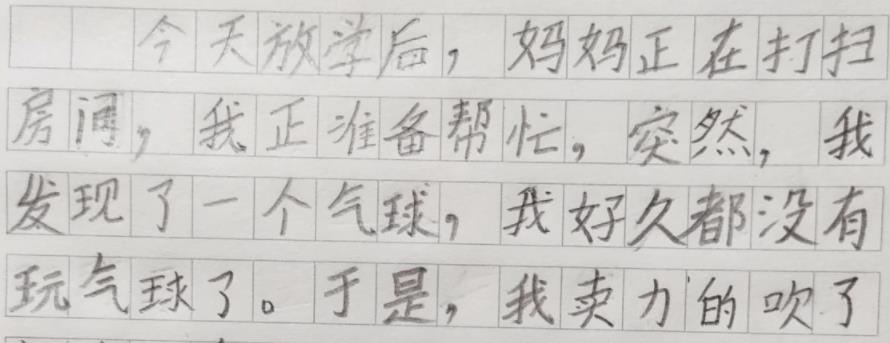 今天放学后，妈妈正在打扫
房间，我正准备帮忙，突然，我
发现了一个气球，我好久都没有
玩气球了。于是，我卖力的吹了